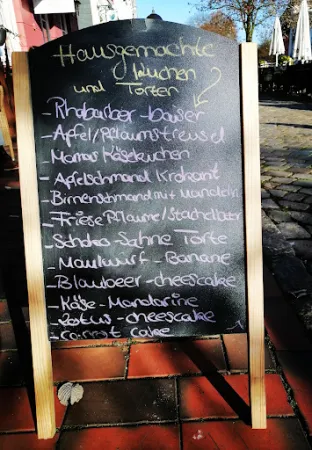 Hausgemachte
Kuchen
und Torten
- Rhabarber - baiser
- Apfel/Pflaumstreusel
- Mamas Käsekuchen
- Apfelschmand Krokant
- Birnenschmand mit Mandeln
- Friese Pflaume/Stachelbeer
- Schoko-Sahne Torte
- Maulwurf - Banane
- Blaubeer - cheesecake
- Käse - Mandarine
- Lotus - cheesecake
- carrot cake